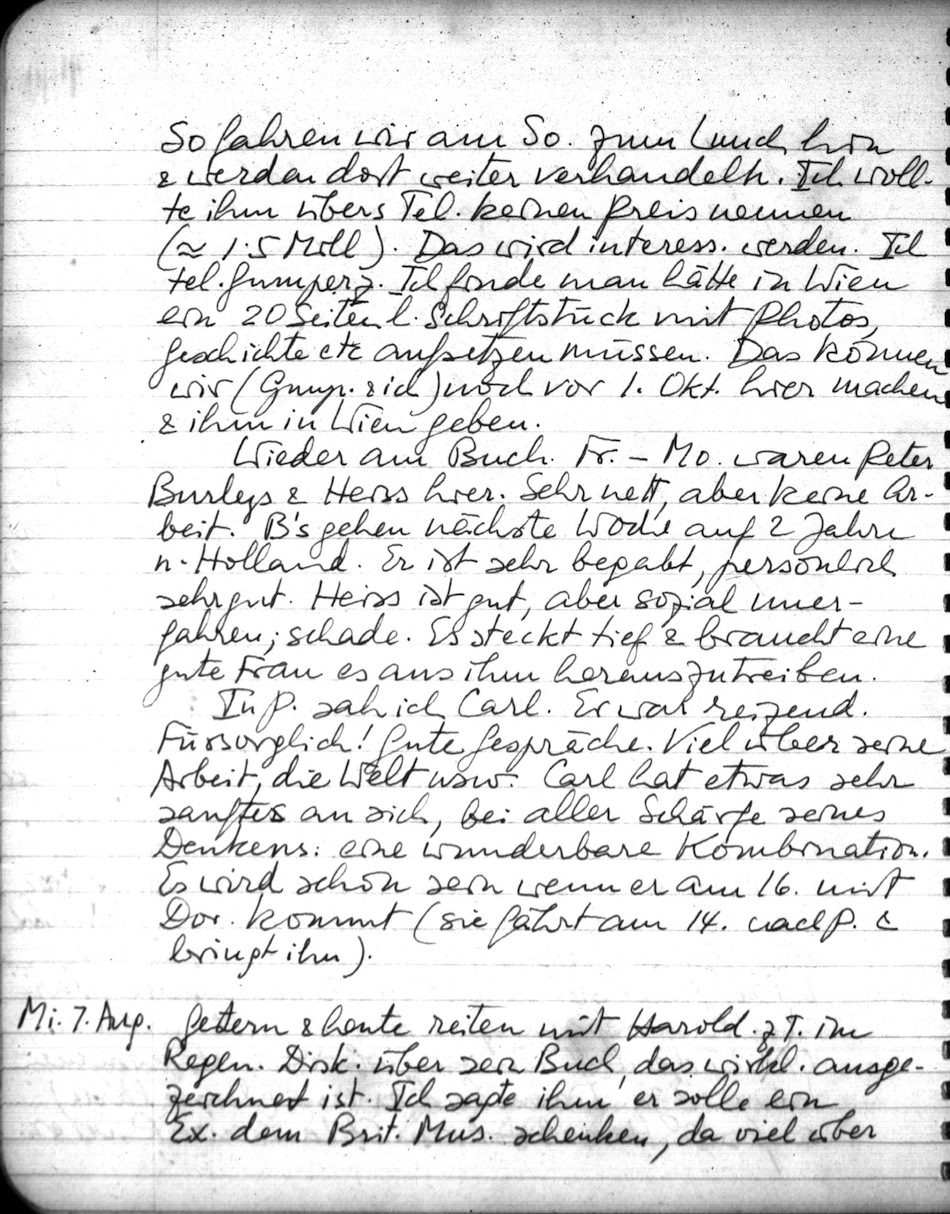 So fahren wir am So. zum Lunch hin
& werden dort weiter verhandeln. Ich woll-
te ihm übers Tel. keinen Preis nennen
(≈ 1.5 Mill). Das wird interess. werden. Ich
tel. Gumperz. Ich finde man hätte in Wien
ein 20 Seiten l. Schriftstück mit Photos,
Geschichte etc aufsetzen müssen. Das können
wir (Gump. & ich) noch vor 1. Okt. hier machen
& ihm in Wien geben.
Wieder am Buch. Fr. – Mo. waren Peter
Burleys & Heiss hier. Sehr nett, aber keine Ar-
beit. B's gehen nächste Woche auf 2 Jahre
n. Holland. Er ist sehr begabt, persönlich
sehr gut. Heiss ist gut, aber sozial uner-
fahren; schade. Es steckt tief & braucht eine
gute Frau es aus ihm herauszutreiben.
In P. sah ich Carl. Er war reizend.
Fürsorglich! Gute Gespräche. Viel über seine
Arbeit, die Welt usw. Carl hat etwas sehr
sanftes an sich, bei aller Schärfe seines
Denkens: eine wunderbare Kombination.
Es wird schön sein wenn er am 16. mit
Dor. kommt (sie fährt am 14. nach P. &
bringt ihn).
Mi. 7. Aug. Gestern & heute reiten mit Harold. z.T. im
Regen. Disk. über sein Buch, das wirkl. ausge-
zeichnet ist. Ich sagte ihm er solle ein
Ex. dem Brit. Mus. schenken, da viel über